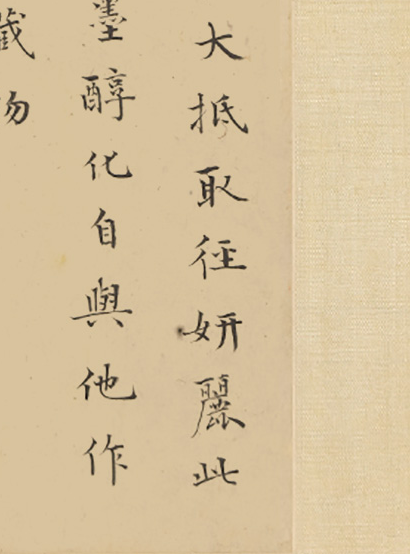 大抵取徑妍麗此
墨醇化自與他作
藏物